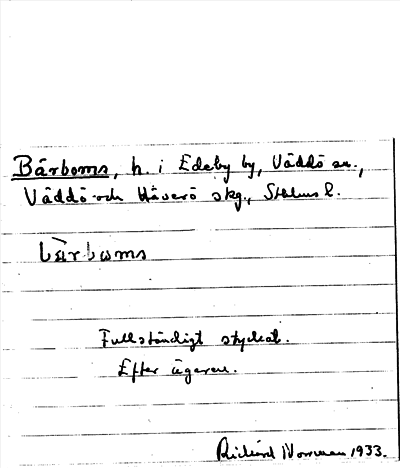 Bärboms, h. i Edeby by, Väddö sn.,
Väddö och Häverö skg., Sthlms l.
bärboms
Fullständigt styckat.
Efter ägaren.
Rickard Norrman 1933.